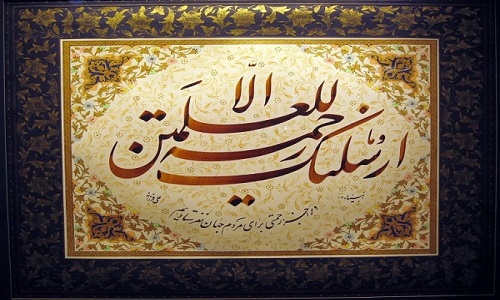 وما ارسلناک الا رحمة للعلمین
انبیاء ۱۰۷
جز رحمتی برای مردم جهان نفرستادیم